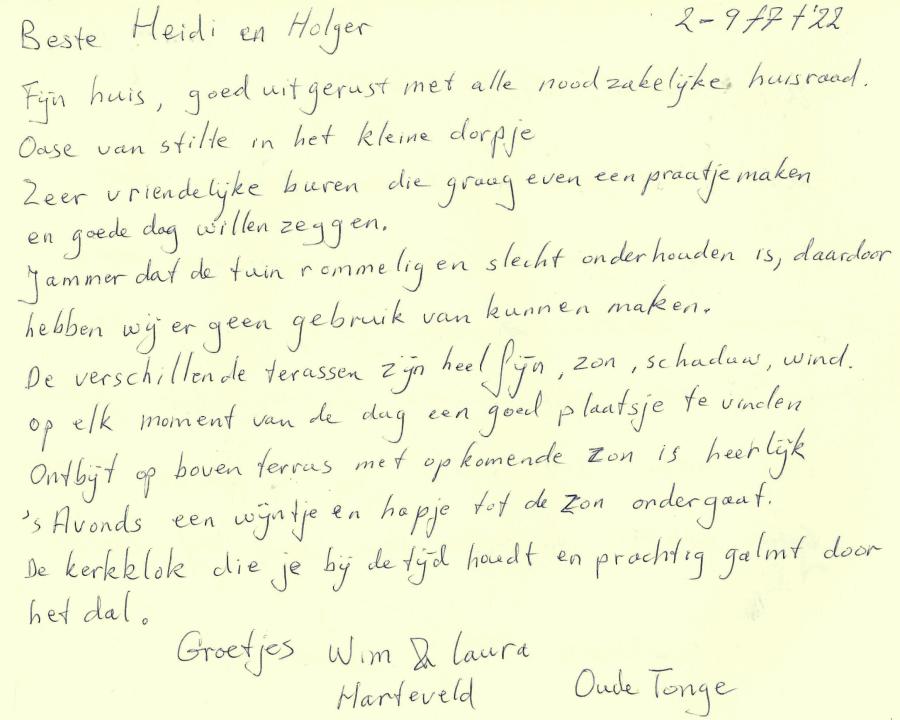 Beste Heidi en Holger
2-9 t/7 '22
Fijn huis, goed uitgerust met alle noodzakelijke huisraad.
Oase van stilte in het kleine dorpje
Zeer vriendelijke buren die graag even een praatje maken
en goede dag willen zeggen.
Jammer dat de tuin rommelig en slecht onderhouden is, daardoor
hebben wij er geen gebruik van kunnen maken.
De verschillende terassen zijn heel fijn, zon, schaduw, wind.
op elk moment van de dag een goed plaatsje te vinden
Ontbijt op boven terras met opkomende zon is heerlijk
's Avonds een wijntje en hapje tot de zon ondergaat.
De kerkklok die je bij de tijd houdt en prachtig galmt door
het dal.
Groetjes Wim & Laura
Harteveld
Oude Tonge